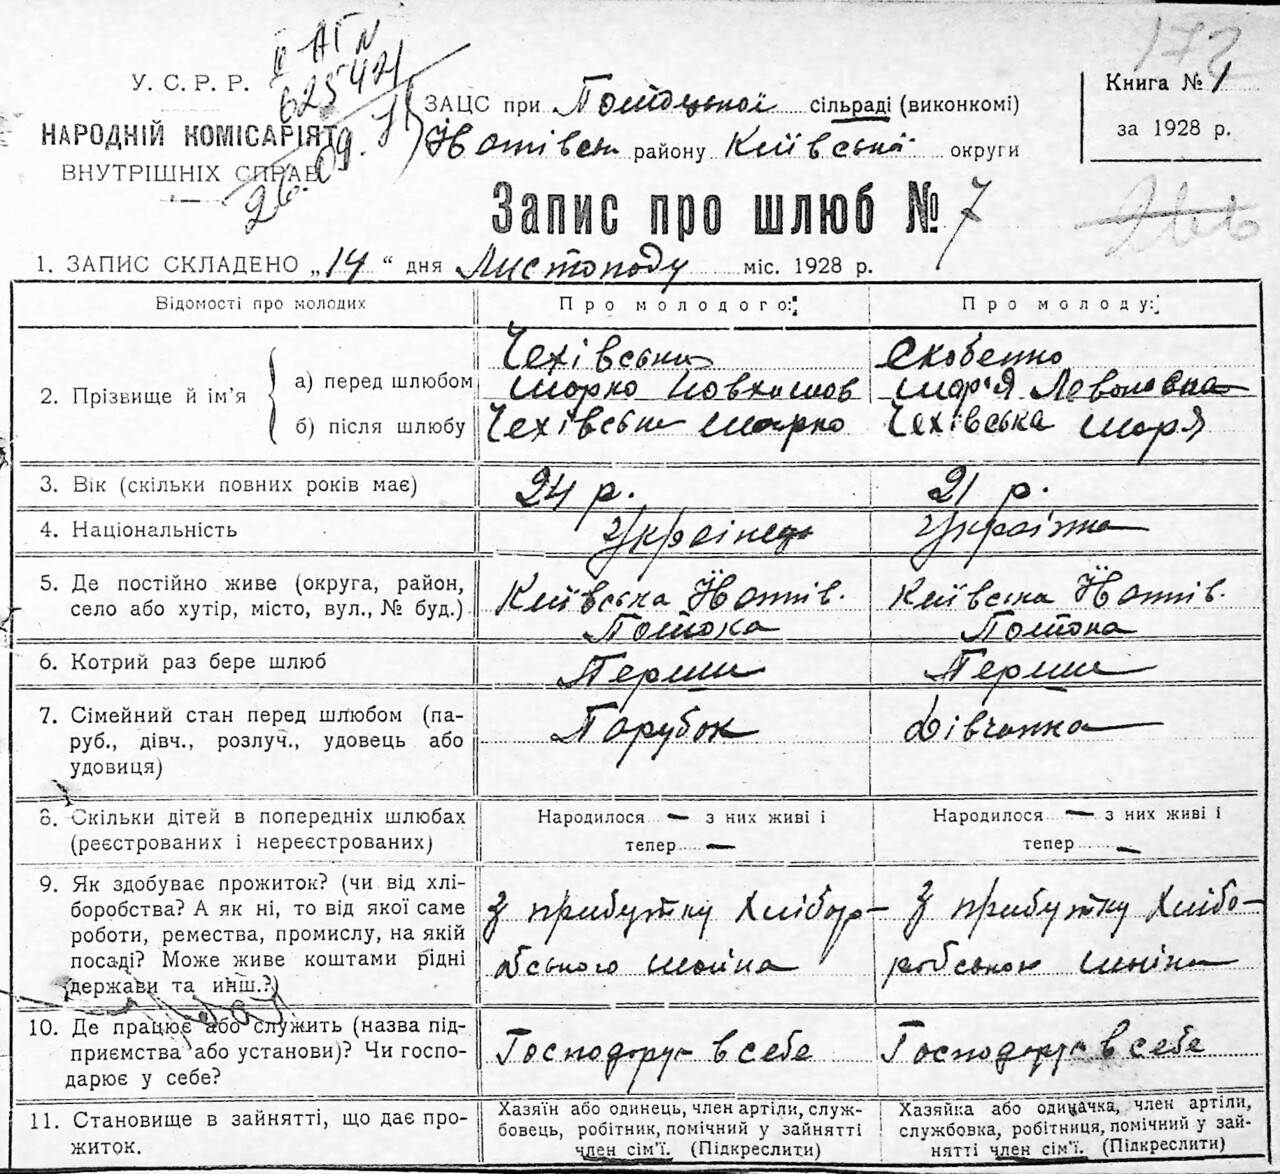 172
У. С. Р. Р.
НАРОДНІЙ КОМІСАРІЯТ
ВНУТРІШНІХ СПРАВ
62542
26.09.
ЗАЦС при Потоцької сільраді (виконкомі)
району Київської округи
Книга № 1
за 1928 р.
Запис про шлюб № 7
1. ЗАПИС СКЛАДЕНО „14“ дня Листопаду міс. 1928 р.
Відомості про молодих
Про молодого:
Про молоду:
2. Прізвище й ім'я
а) перед шлюбом
Чехівський
Марко
Марія
б) після шлюбу
Чехівський Марко
Чехівська Марія
3. Вік (скільки повних років має)
24 р.
21 р.
4. Національність
Українець
Українка
5. Де постійно живе (округа, район,
село або хутір, місто, вул., № буд.)
Київська
Потока
Київська
Потока
6. Котрий раз бере шлюб
Перший
Перший
7. Сімейний стан перед шлюбом (па-
руб., дівч., розлуч., удовець або
удовиця)
Парубок
Дівчина
8. Скільки дітей в попередніх шлюбах
(реєстрованих і нереєстрованих)
Народилося — з них живі і
тепер —
Народилося — з них живі і
тепер —
9. Як здобуває прожиток? (чи від хлі-
боробства? А як ні, то від якої саме
роботи, ремества, промислу, на якій
посаді? Може живе коштами рідні
держави та инш.?)
З прибутку Хлібор-
обського майна
З прибутку Хлібо-
робського майна
10. Де працює або служить (назва під-
приємства або установи)? Чи госпо-
дарює у себе?
Господарує в себе
Господарує в себе
11. Становище в зайнятті, що дає про-
житок.
Хазяїн або одинець, член артіли, служ-
бовець, робітник, помічний у зайнятті
член сім'ї. (Підкреслити)
Хазяйка або одиначка, член артіли,
службовка, робітниця, помічний у зай-
нятті член сім'ї. (Підкреслити)